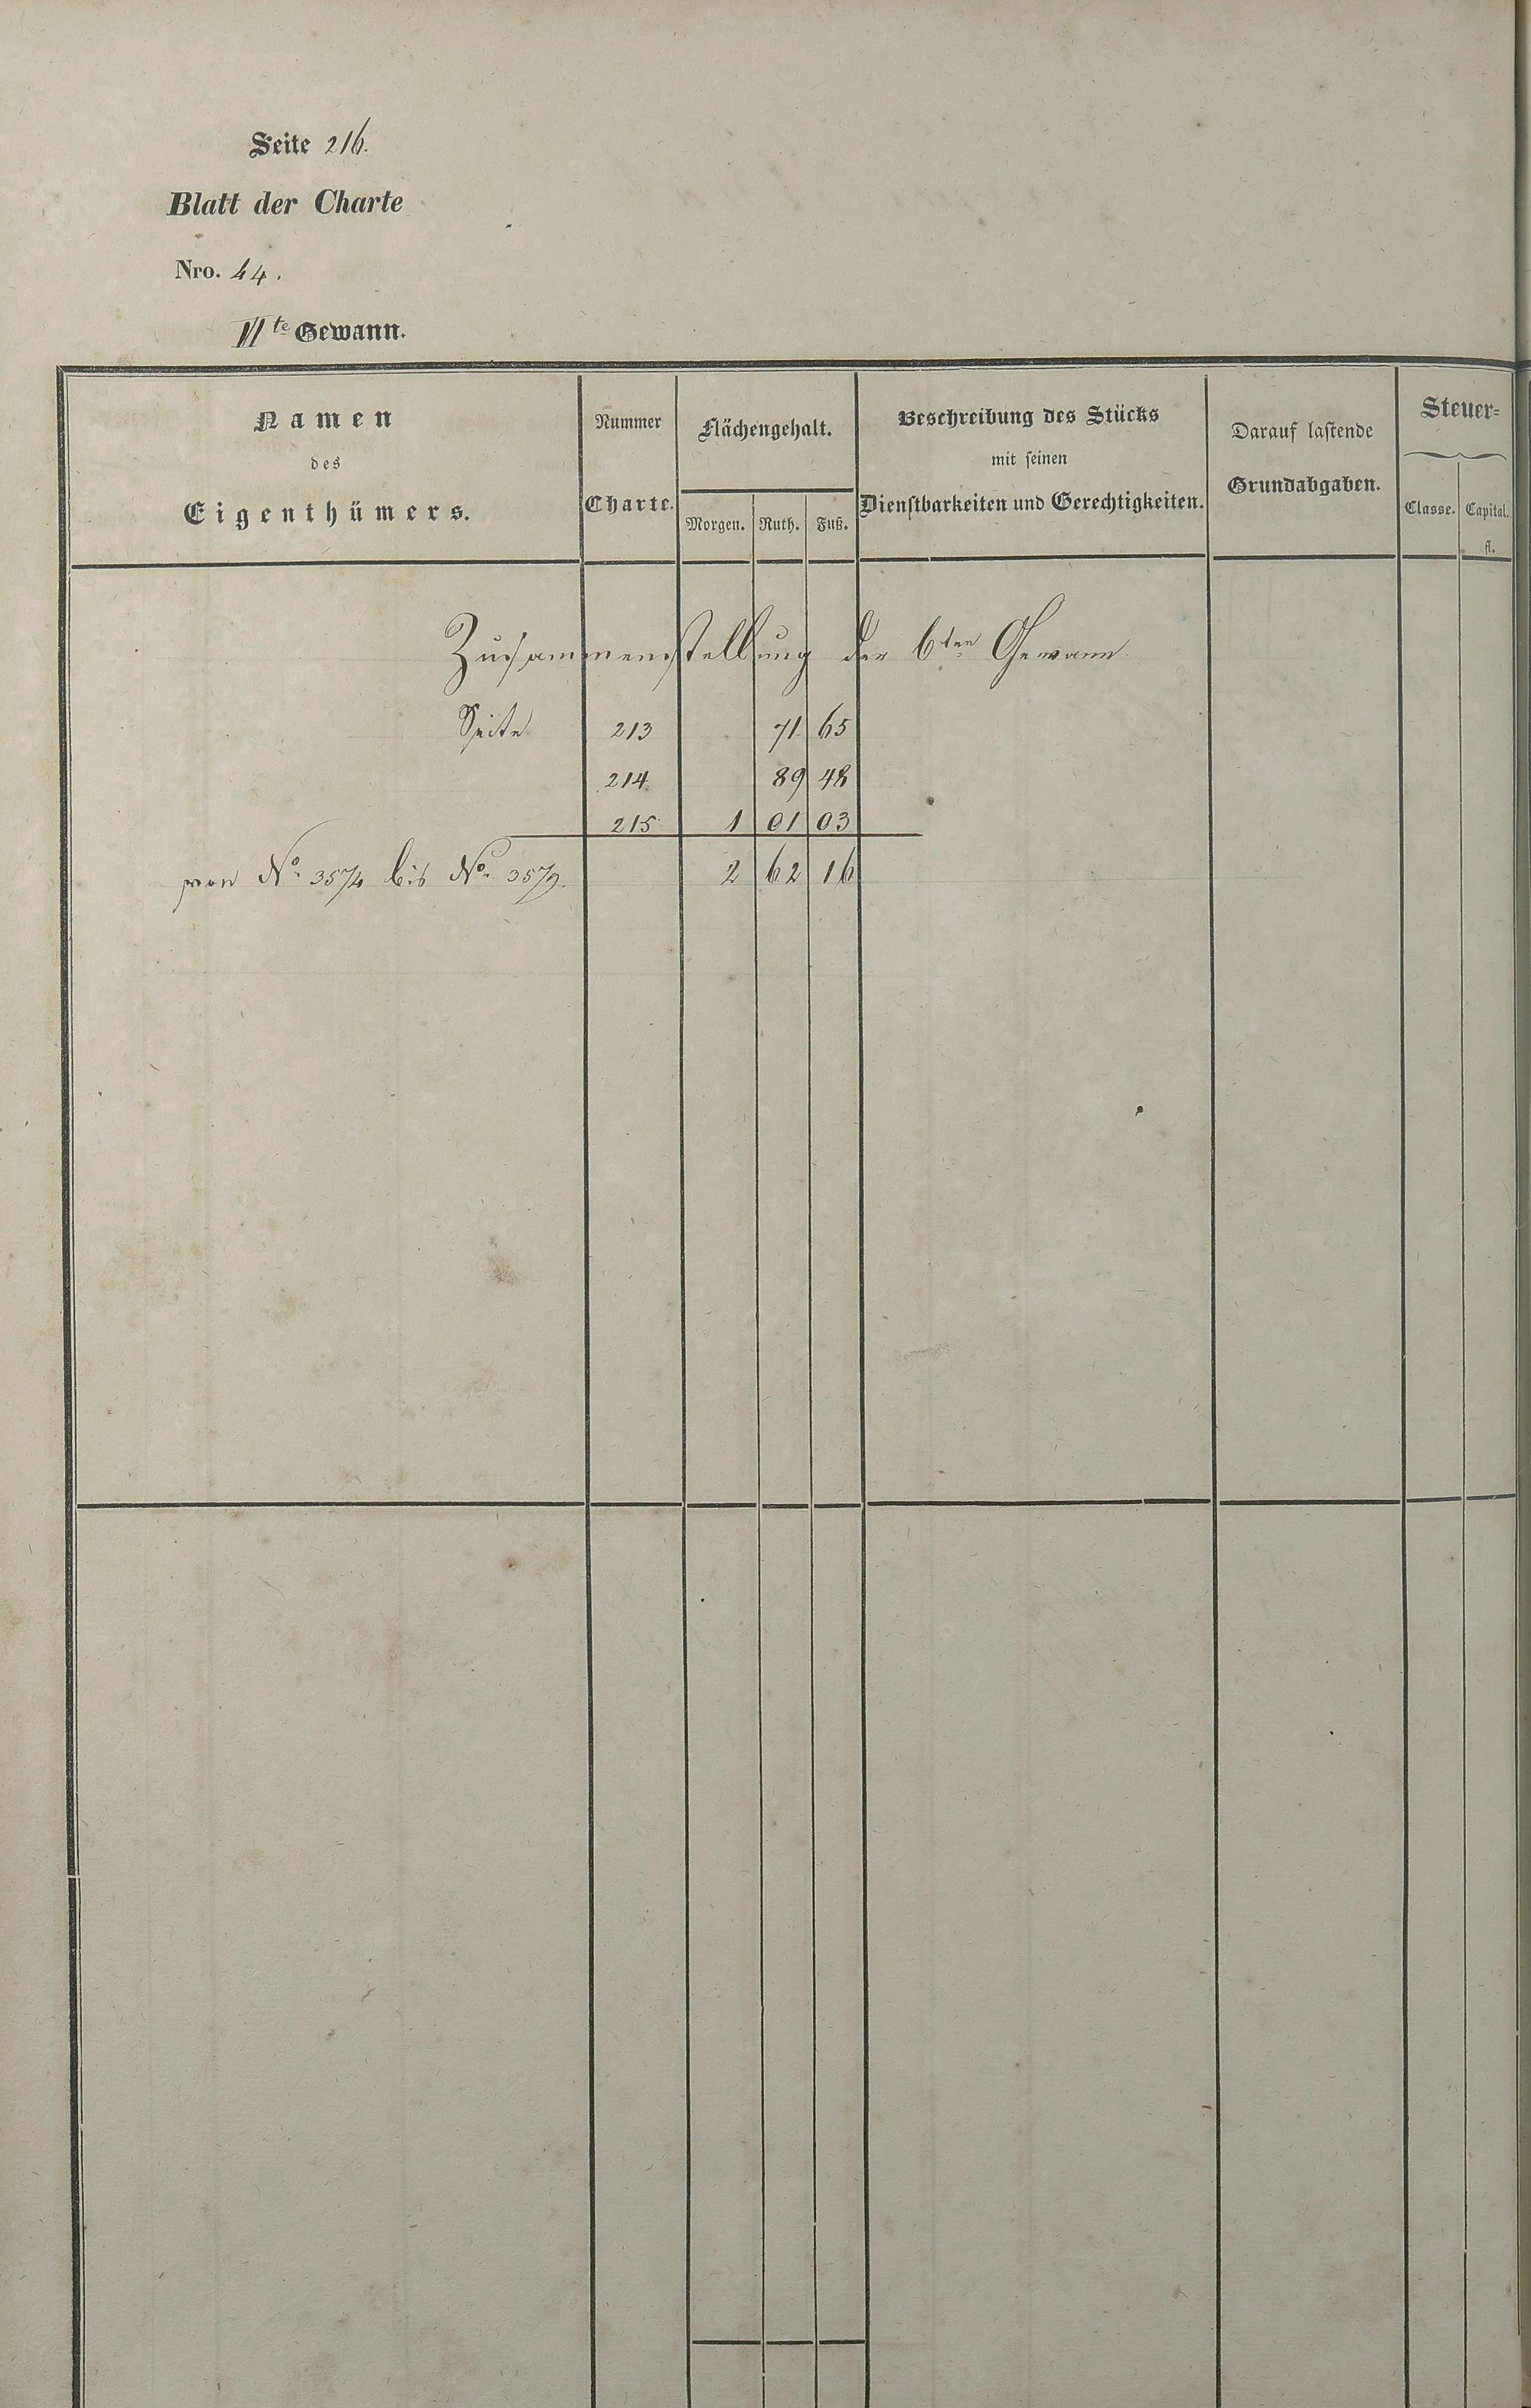 Seite 216.
Blatt der Charte
Nro. 44.
VIte Gewann.
Namen
des
Eigenthümers.
Nummer
Charte.
Flächengehalt.
Morgen. Ruth. Fuß.
Beschreibung des Stücks
mit seinen
Dienstbarkeiten und Gerechtigkeiten.
Darauf lastende
Grundabgaben.
Steuer=
Classe. Capital.
fl.
Zusammenstellung der 6ten Gewann
Seite 213 71 65
214. 89 48
215 1 01 03
von No. 3574 bis No. 3579. 2 62 16